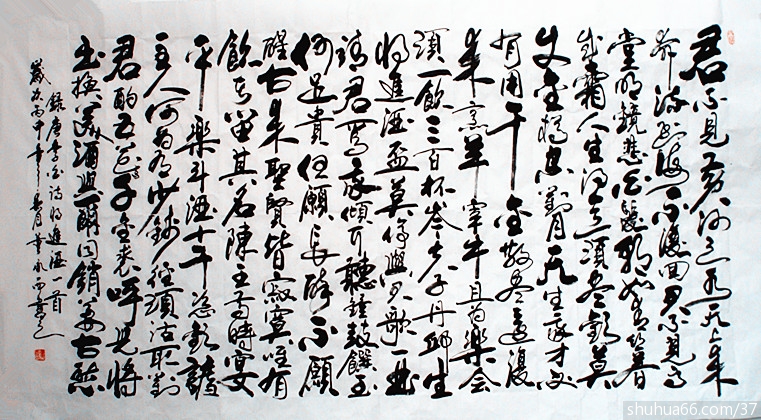 君不見黄河之水天上来
奔流到海不復回君不見高
堂明鏡悲白髮朝如青絲暮
成霜人生得意須盡歡莫
使金樽空對月天生我才必
有用千金散盡還復
来烹羊宰牛且為樂會
須一飲三百杯岑夫子丹邱生
将進酒盃莫停與君歌一曲
請君為我傾耳聽鐘鼓饌玉
何足貴但願長醉不願
醒古来聖賢皆寂寞唯有
飲者留其名陳王昔時宴
平樂斗酒十千恣歡謔
主人何為言少錢徑須沽取對
君酌五花馬千金裘呼兒將
出換美酒與爾同銷萬古愁
錄唐李白詩将進酒一首
歲次丙申年
shuhua66.com/37